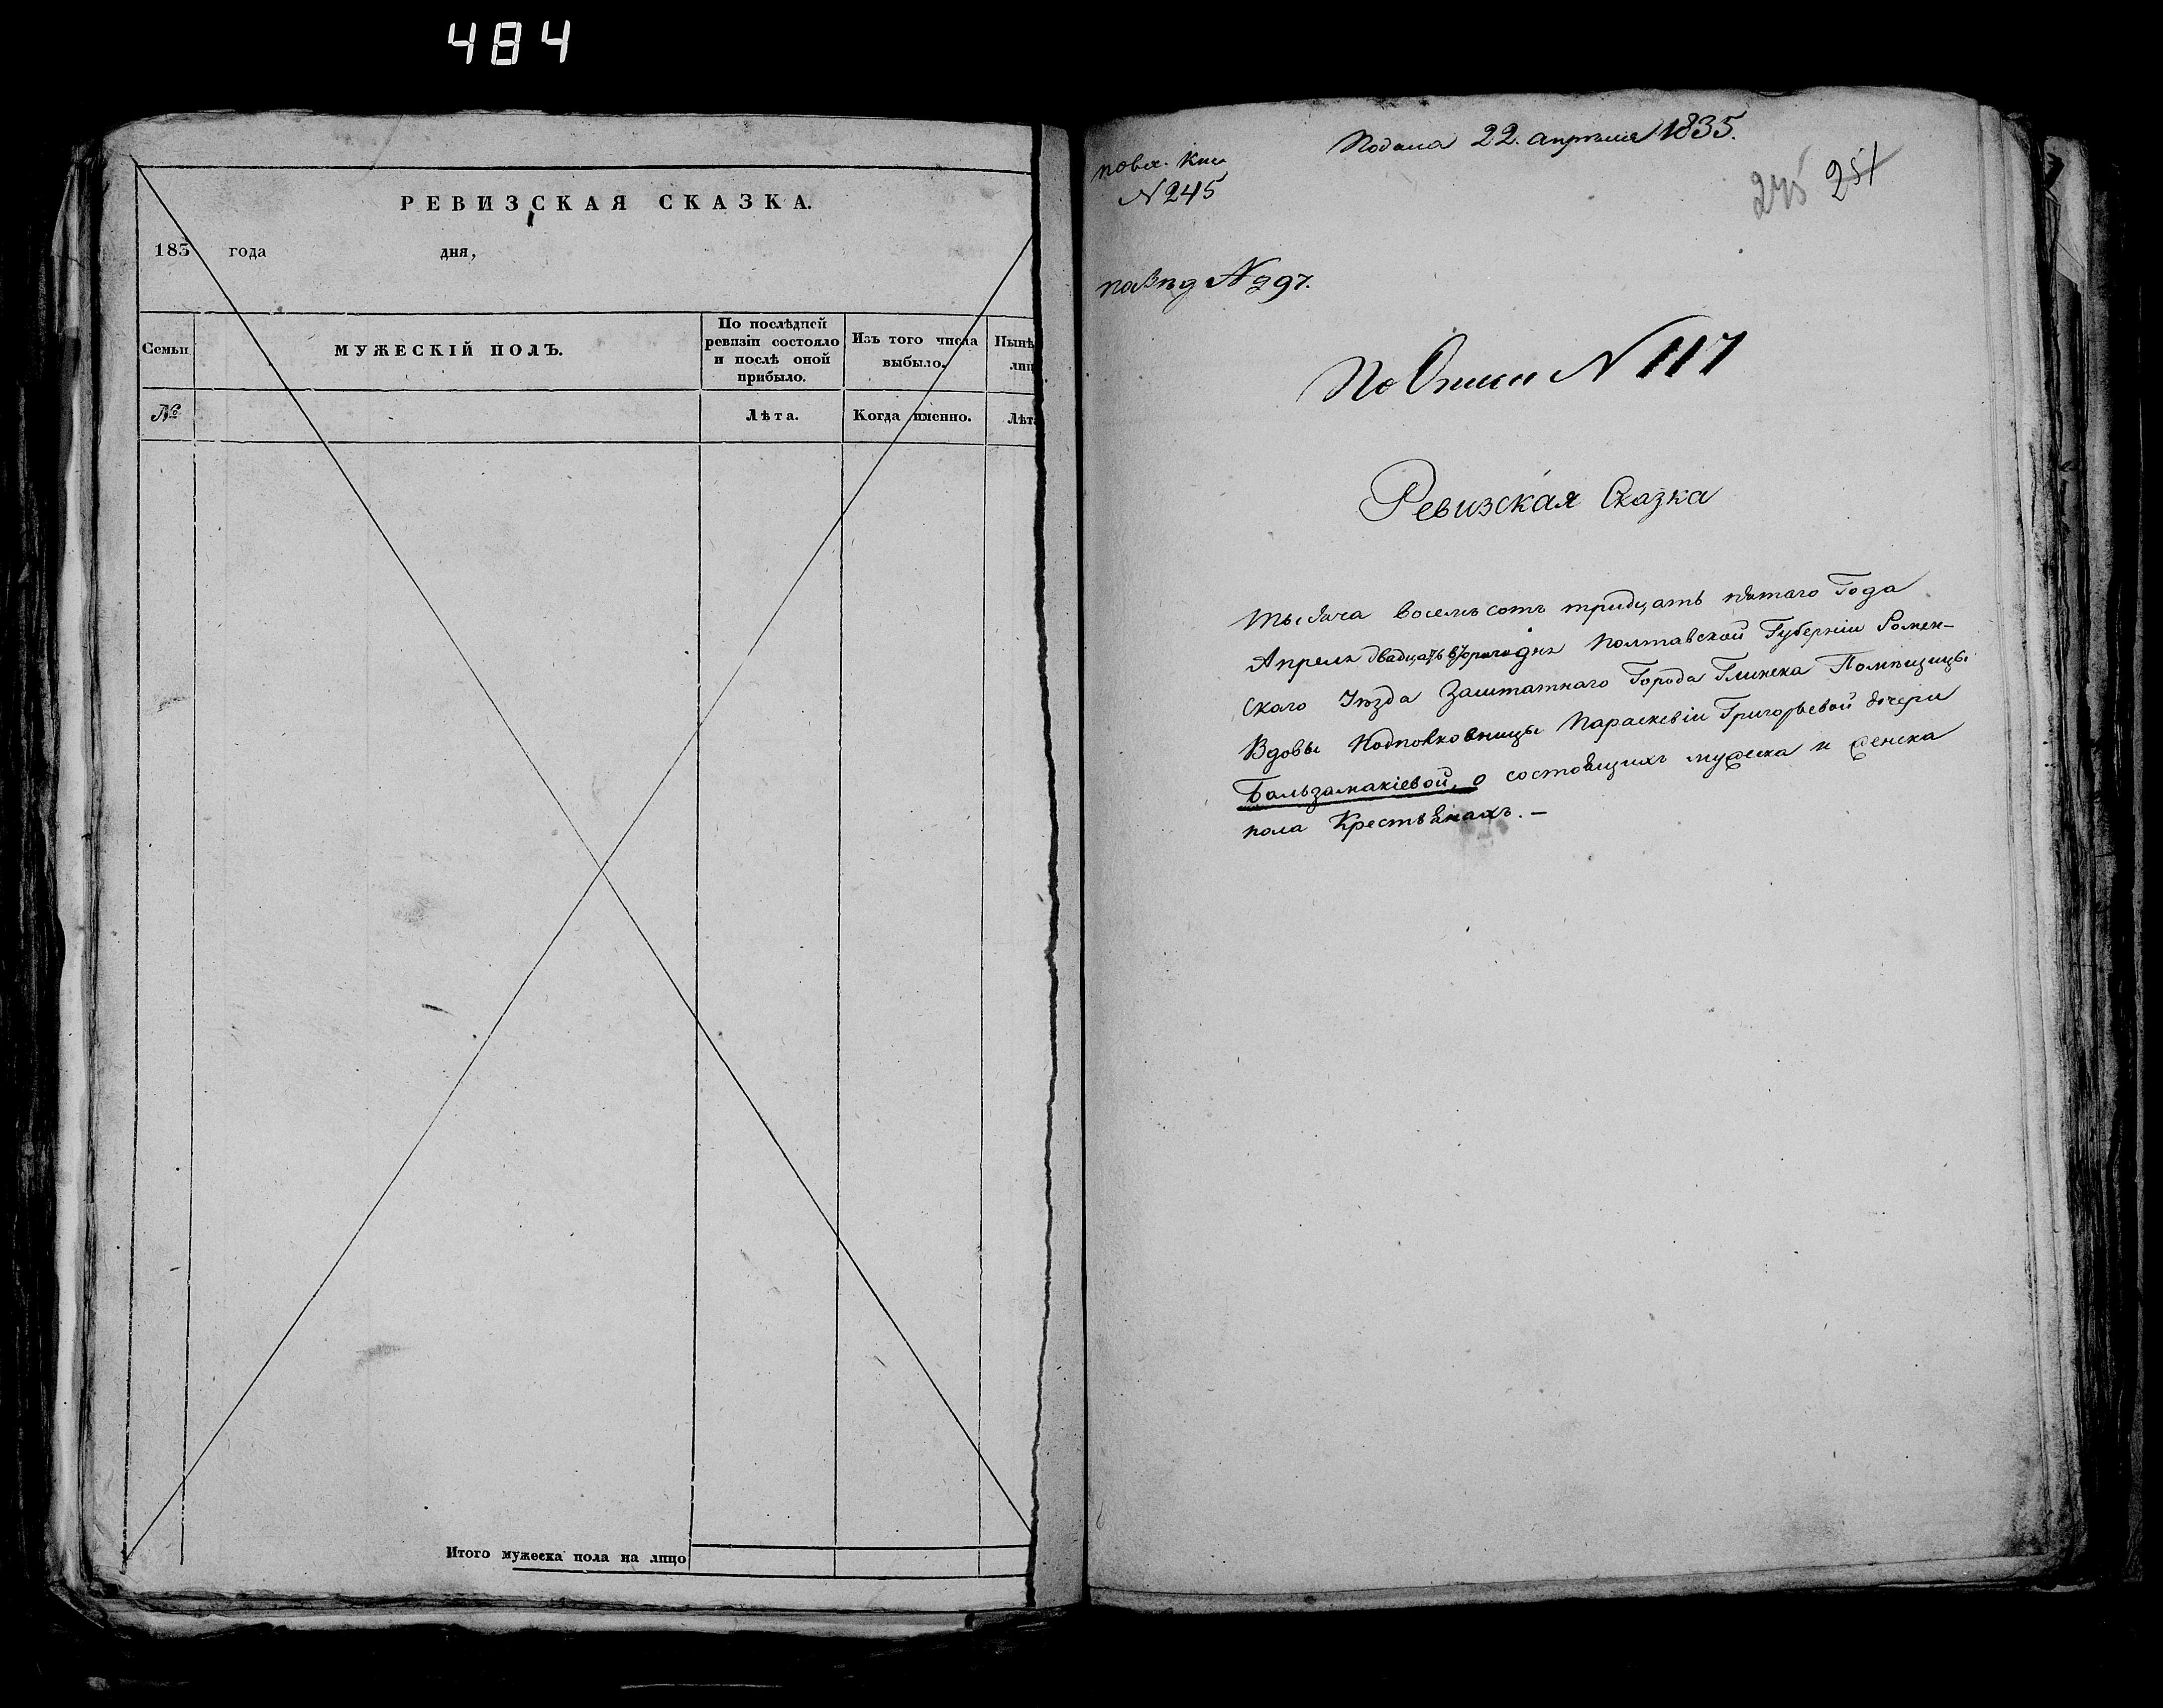 484
РЕВИЗСКАЯ СКАЗКА.
183 года дня,
Семьи
МУЖЕСКІЙ ПОЛЪ.
По послѣдней
ревизіи состояло
и послѣ оной
прибыло.
Изъ того числа
выбыло.
Нынѣ
лиц
№
Лѣта.
Когда именно.
Лѣта
Итого мужеска пола на лицо
Подана 22. апрѣля 1835.
N 245
245 251
По Описи N 117
Ревизская Сказка
Тысяча восемьсотъ тридцать пятаго Года
Апреля двадцать втораго дня Полтавской Губерніи Ромен-
скаго Уѣзда Заштатнаго Города Глинска Помѣщицы
Вдовы Подполковницы Параскевіи Григорьевой дочери
Бальзаманіевой, о состоящихъ мужеска и женска
пола Крестьянахъ. —